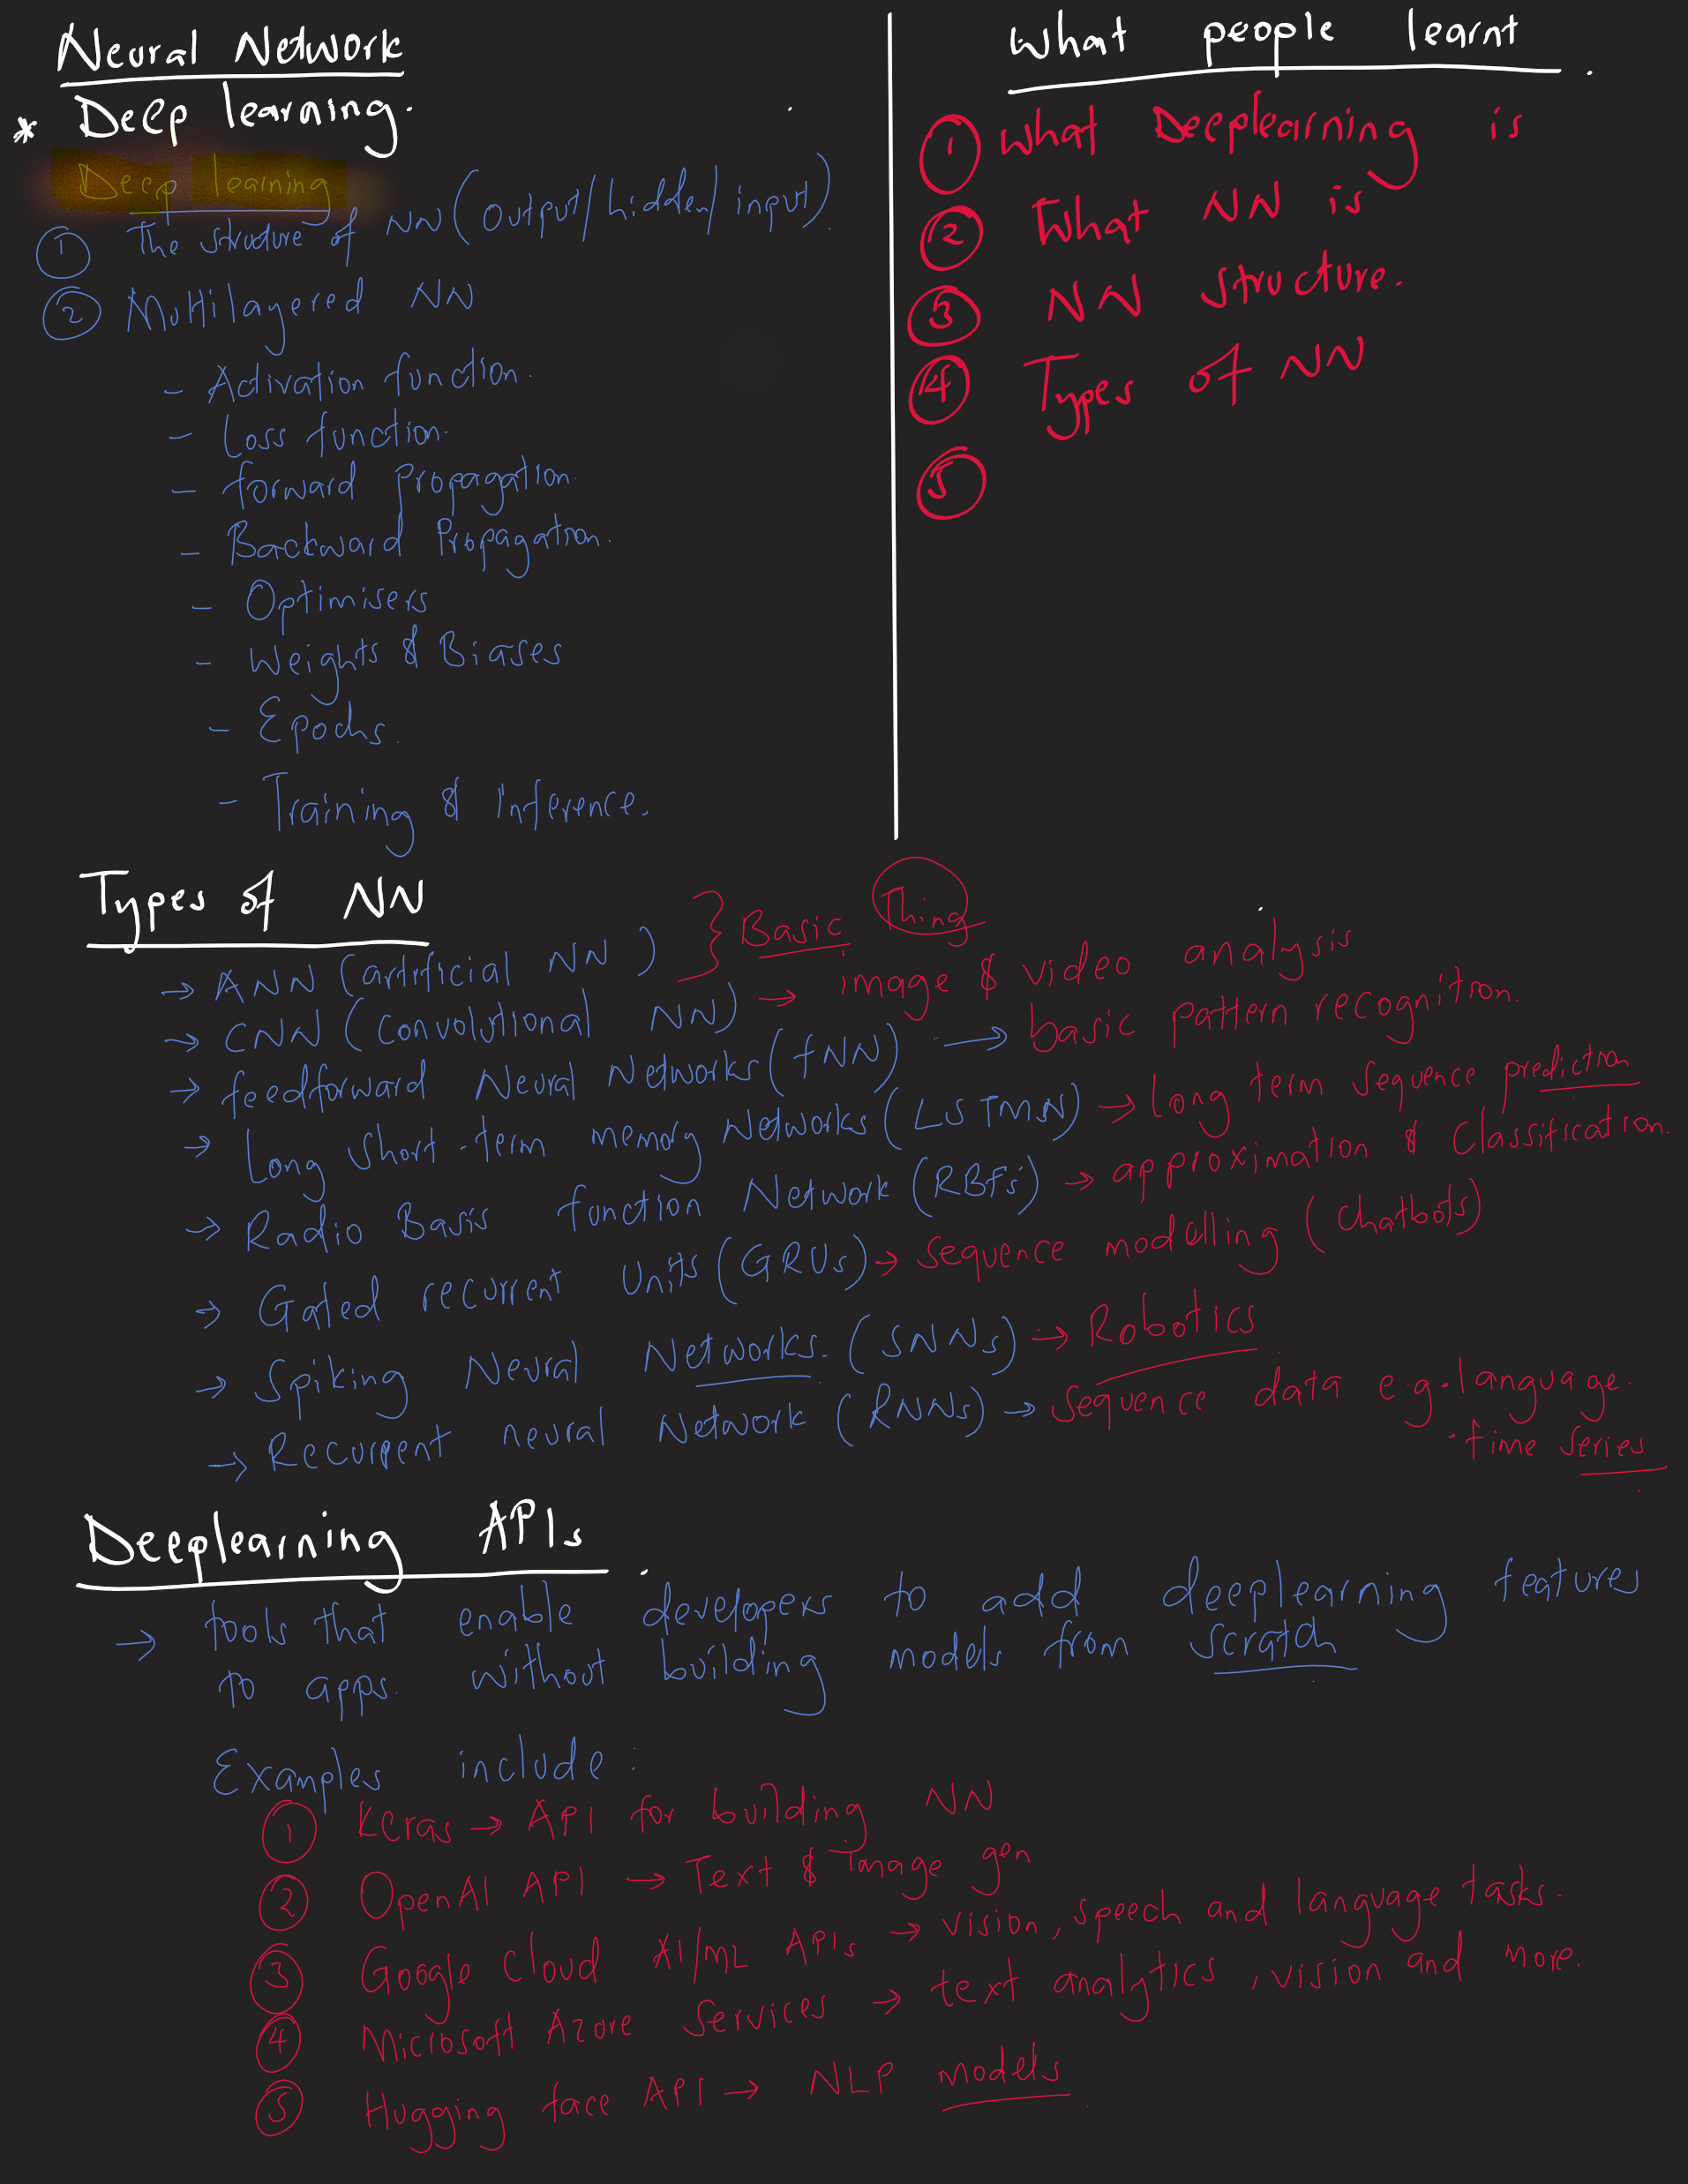 Neural Network
* Deep learning.
Deep learning
① The structure of NN (output/hidden/input).
② Multilayered NN
- Activation function.
- Loss function.
- forward propagation.
- Backward Propagation.
- Optimisers
- Weights & Biases
- Epochs.
- Training & Inference.
What people learnt.
① What Deeplearning is
② What NN is
③ NN structure.
④ Types of NN
⑤
Types of NN
→ ANN (artificial NN) } Basic Thing
→ CNN (Convolutional NN) → image & video analysis
→ feedforward Neural Networks (fNN) → basic pattern recognition.
→ Long short-term memory Networks (LSTMN) → Long term sequence prediction
→ Radio Basis function Network (RBFs) → approximation & Classification.
→ Gated recurrent Units (GRUs) → sequence modelling (chatbots)
→ Spiking Neural Networks. (SNNs) → Robotics
→ Recurrent neural Network (RNNs) → Sequence data e.g. language.
· time series
Deeplearning APIs.
→ tools that enable developers to add deeplearning features
to apps. without building models from scratch
Examples include:
① Keras → API for building NN
② OpenAI API → Text & Image gen
③ Google Cloud AI/ML APIs → vision, speech and language tasks.
④ Microsoft Azore Services → text analytics, vision and more.
⑤ Hugging face API → NLP models